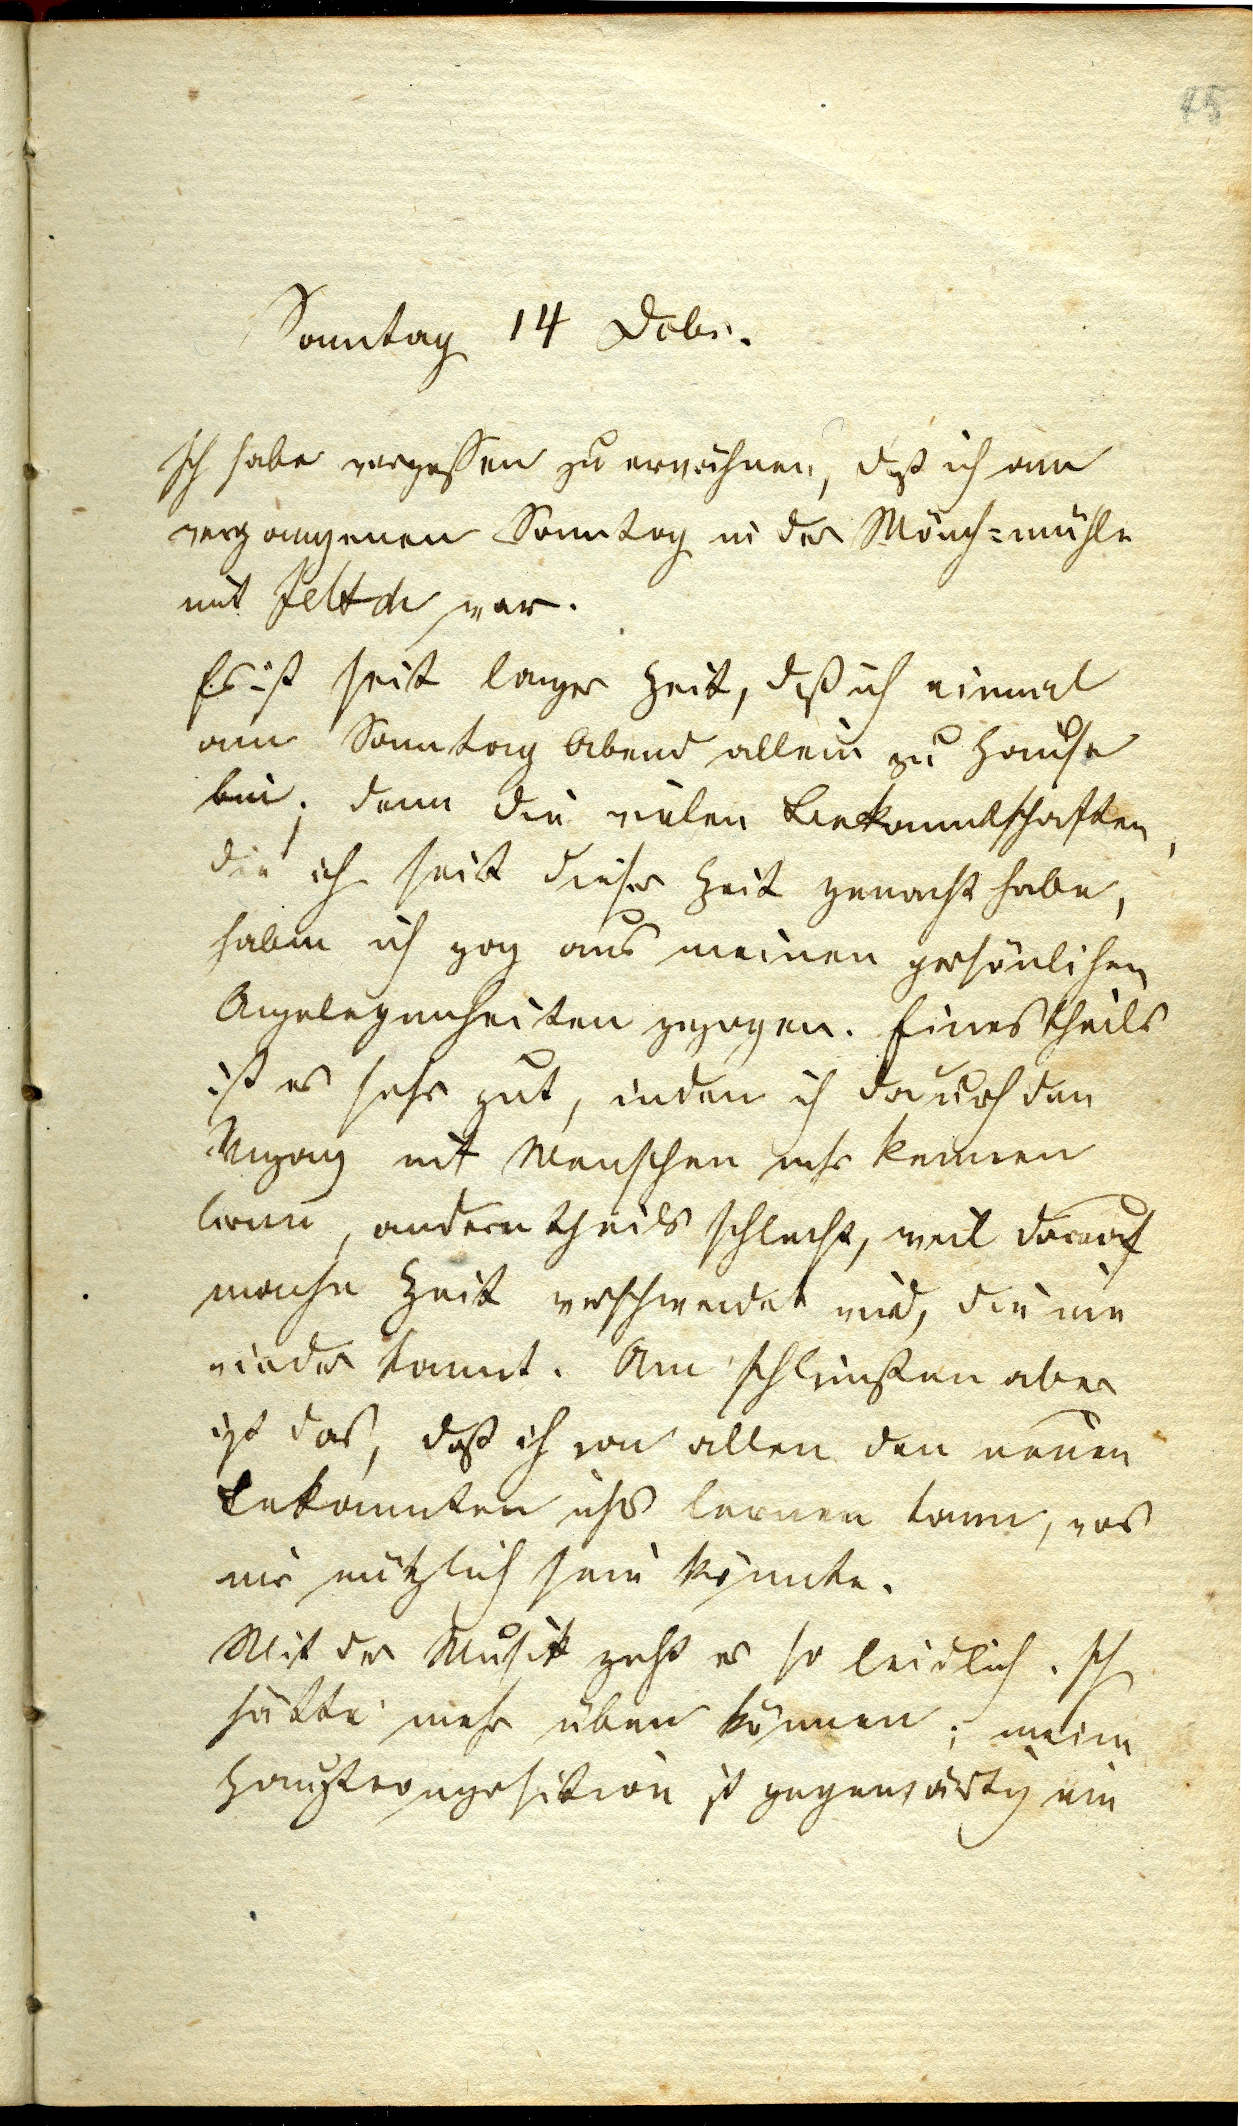 45
Sonntag 14 Dcbr.
Ich habe vergessen zu erwähnen, daß ich am
vergangenen Sonntag in der Mönch=mühle
mit war.
Es ist seit langer Zeit, daß ich einmal
am Sonntag Abend allein zu Hause
bin; denn die vielen Bekanntschaften,
die ich seit dieser Zeit gemacht habe,
haben ich aus meinen persönlichen
Angelegenheiten gezogen. Einestheils
ist es sehr gut, indem ich dadurch den
Umgang mit Menschen mehr kennen
lerne, anderntheils schlecht, weil darauf
manche Zeit verschwendet wird, die nie
wieder kommt. Am schlimsten aber
ist das, daß ich von allen den neuen
Bekannten nichts lernen kann, was
mir nützlich sein könnte.
Mit der Musik geht es so leidlich. Ich
hätte mehr üben können; meine
Hauptcomposition ist gegenwärtig ein